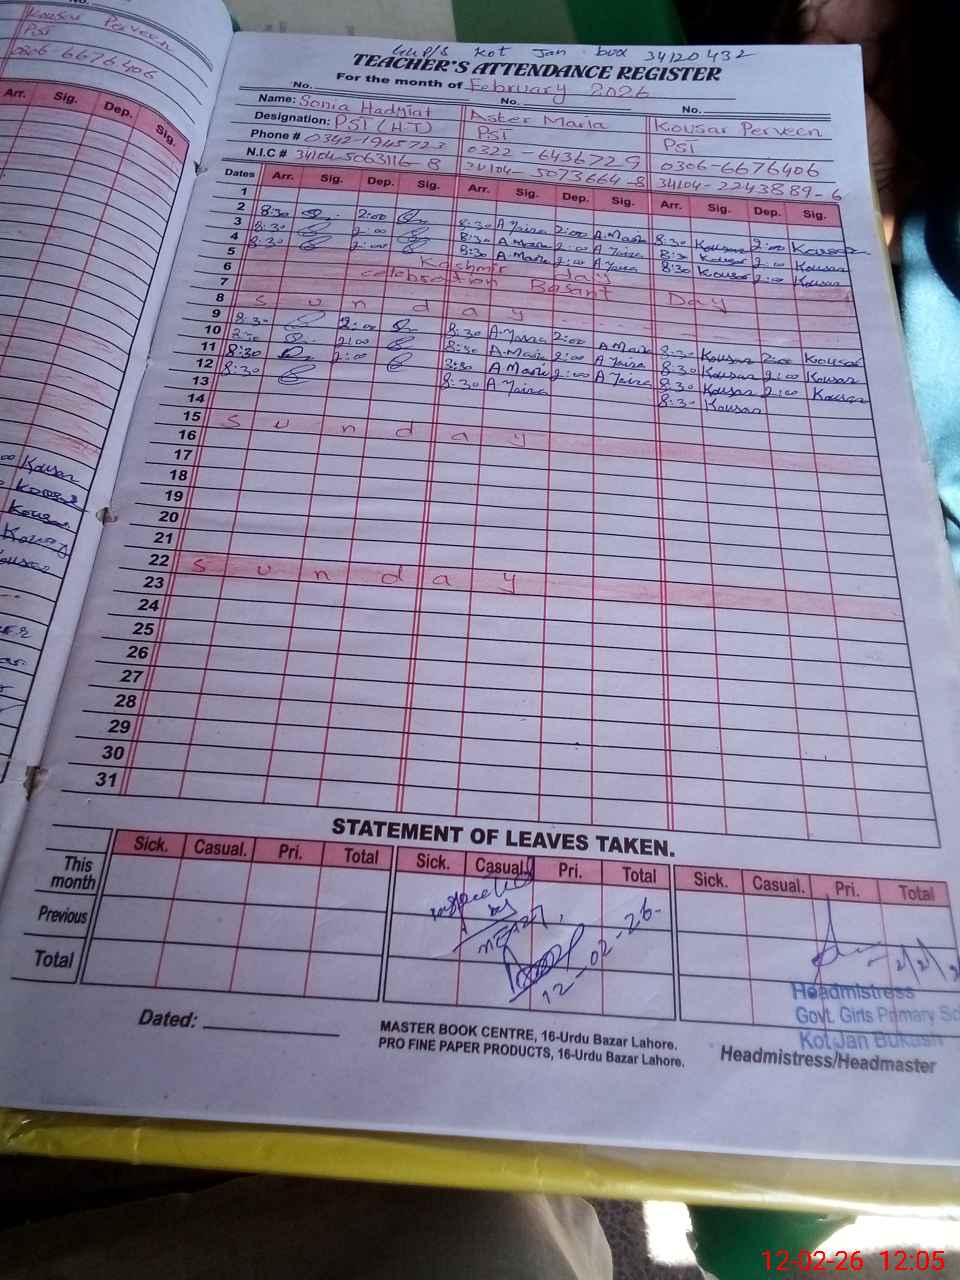 Kousar Perveen
PST
0306-6676406
Arr. Sig. Dep. Sig.
kot Jan bux 34120432
TEACHER'S ATTENDANCE REGISTER
For the month of February 2026
No. No. No.
Name: Sonia Hadyiat Aster Maria Kousar Perveen
Designation: PST (H.T) PST PST
Phone # 0342-1945723 0322-6436729 0306-6676406
N.I.C # 34104-5063116-8 34104-5073664-8 34104-2243889-6
Dates Arr. Sig. Dep. Sig. Arr. Sig. Dep. Sig. Arr. Sig. Dep. Sig.
1
2 8:30 2:00 8:30 A Faiza 2:00 A.Maria 8:30 Kousar 2:00 Kousar
3 8:30 2:00 8:30 A.Maria 2:00 A Faiza 8:30 Kousar 2:00 Kousar
4 8:30 2:00 8:30 A.Maria 2:00 A Faiza 8:30 Kousar 2:00 Kousar
5 Kashmir day
6 celebration Basant Day
7
8 S u n d a y
9 8:30 2:00 8:30 A Faiza 2:00 A Maria 8:30 Kousar 2:00 Kousar
10 2:00 8:30 A.Maria 2:00 A Faiza 8:30 Kousar 2:00 Kousar
11 8:30 2:00 8:30 A Maria 2:00 A Faiza 8:30 Kousar 2:00 Kousar
12 8:30 8:30 A Faiza 8:30 Kousar
13
14
15 S u n d a y
16
17
18
19
20
21
22 S u n d a y
23
24
25
26
27
28
29
30
31
Kousar
Kousar
Kousar
Kousar
STATEMENT OF LEAVES TAKEN.
Sick. Casual. Pri. Total Sick. Casual. Pri. Total Sick. Casual. Pri. Total
This month
Previous
Total
Inspected
by
MEA
12-02-26
Headmistress
Govt. Girls Primary Sc
Kot Jan Buksh
Dated:
MASTER BOOK CENTRE, 16-Urdu Bazar Lahore.
PRO FINE PAPER PRODUCTS, 16-Urdu Bazar Lahore.
Headmistress/Headmaster
12-02-26 12:05